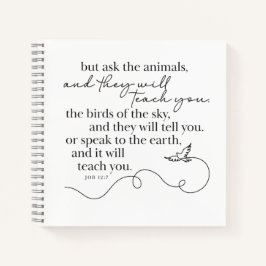 but ask the animals,
and they will
teach you.
the birds of the sky,
and they will tell you.
or speak to the earth,
and it will
teach you.
JOB 12:7